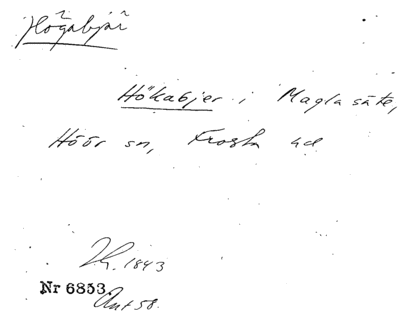 Högabjär
Hökabjer i Maglasäte,
Höör sn, Frosta hd
1843
Nr 6853.
Ant 58.